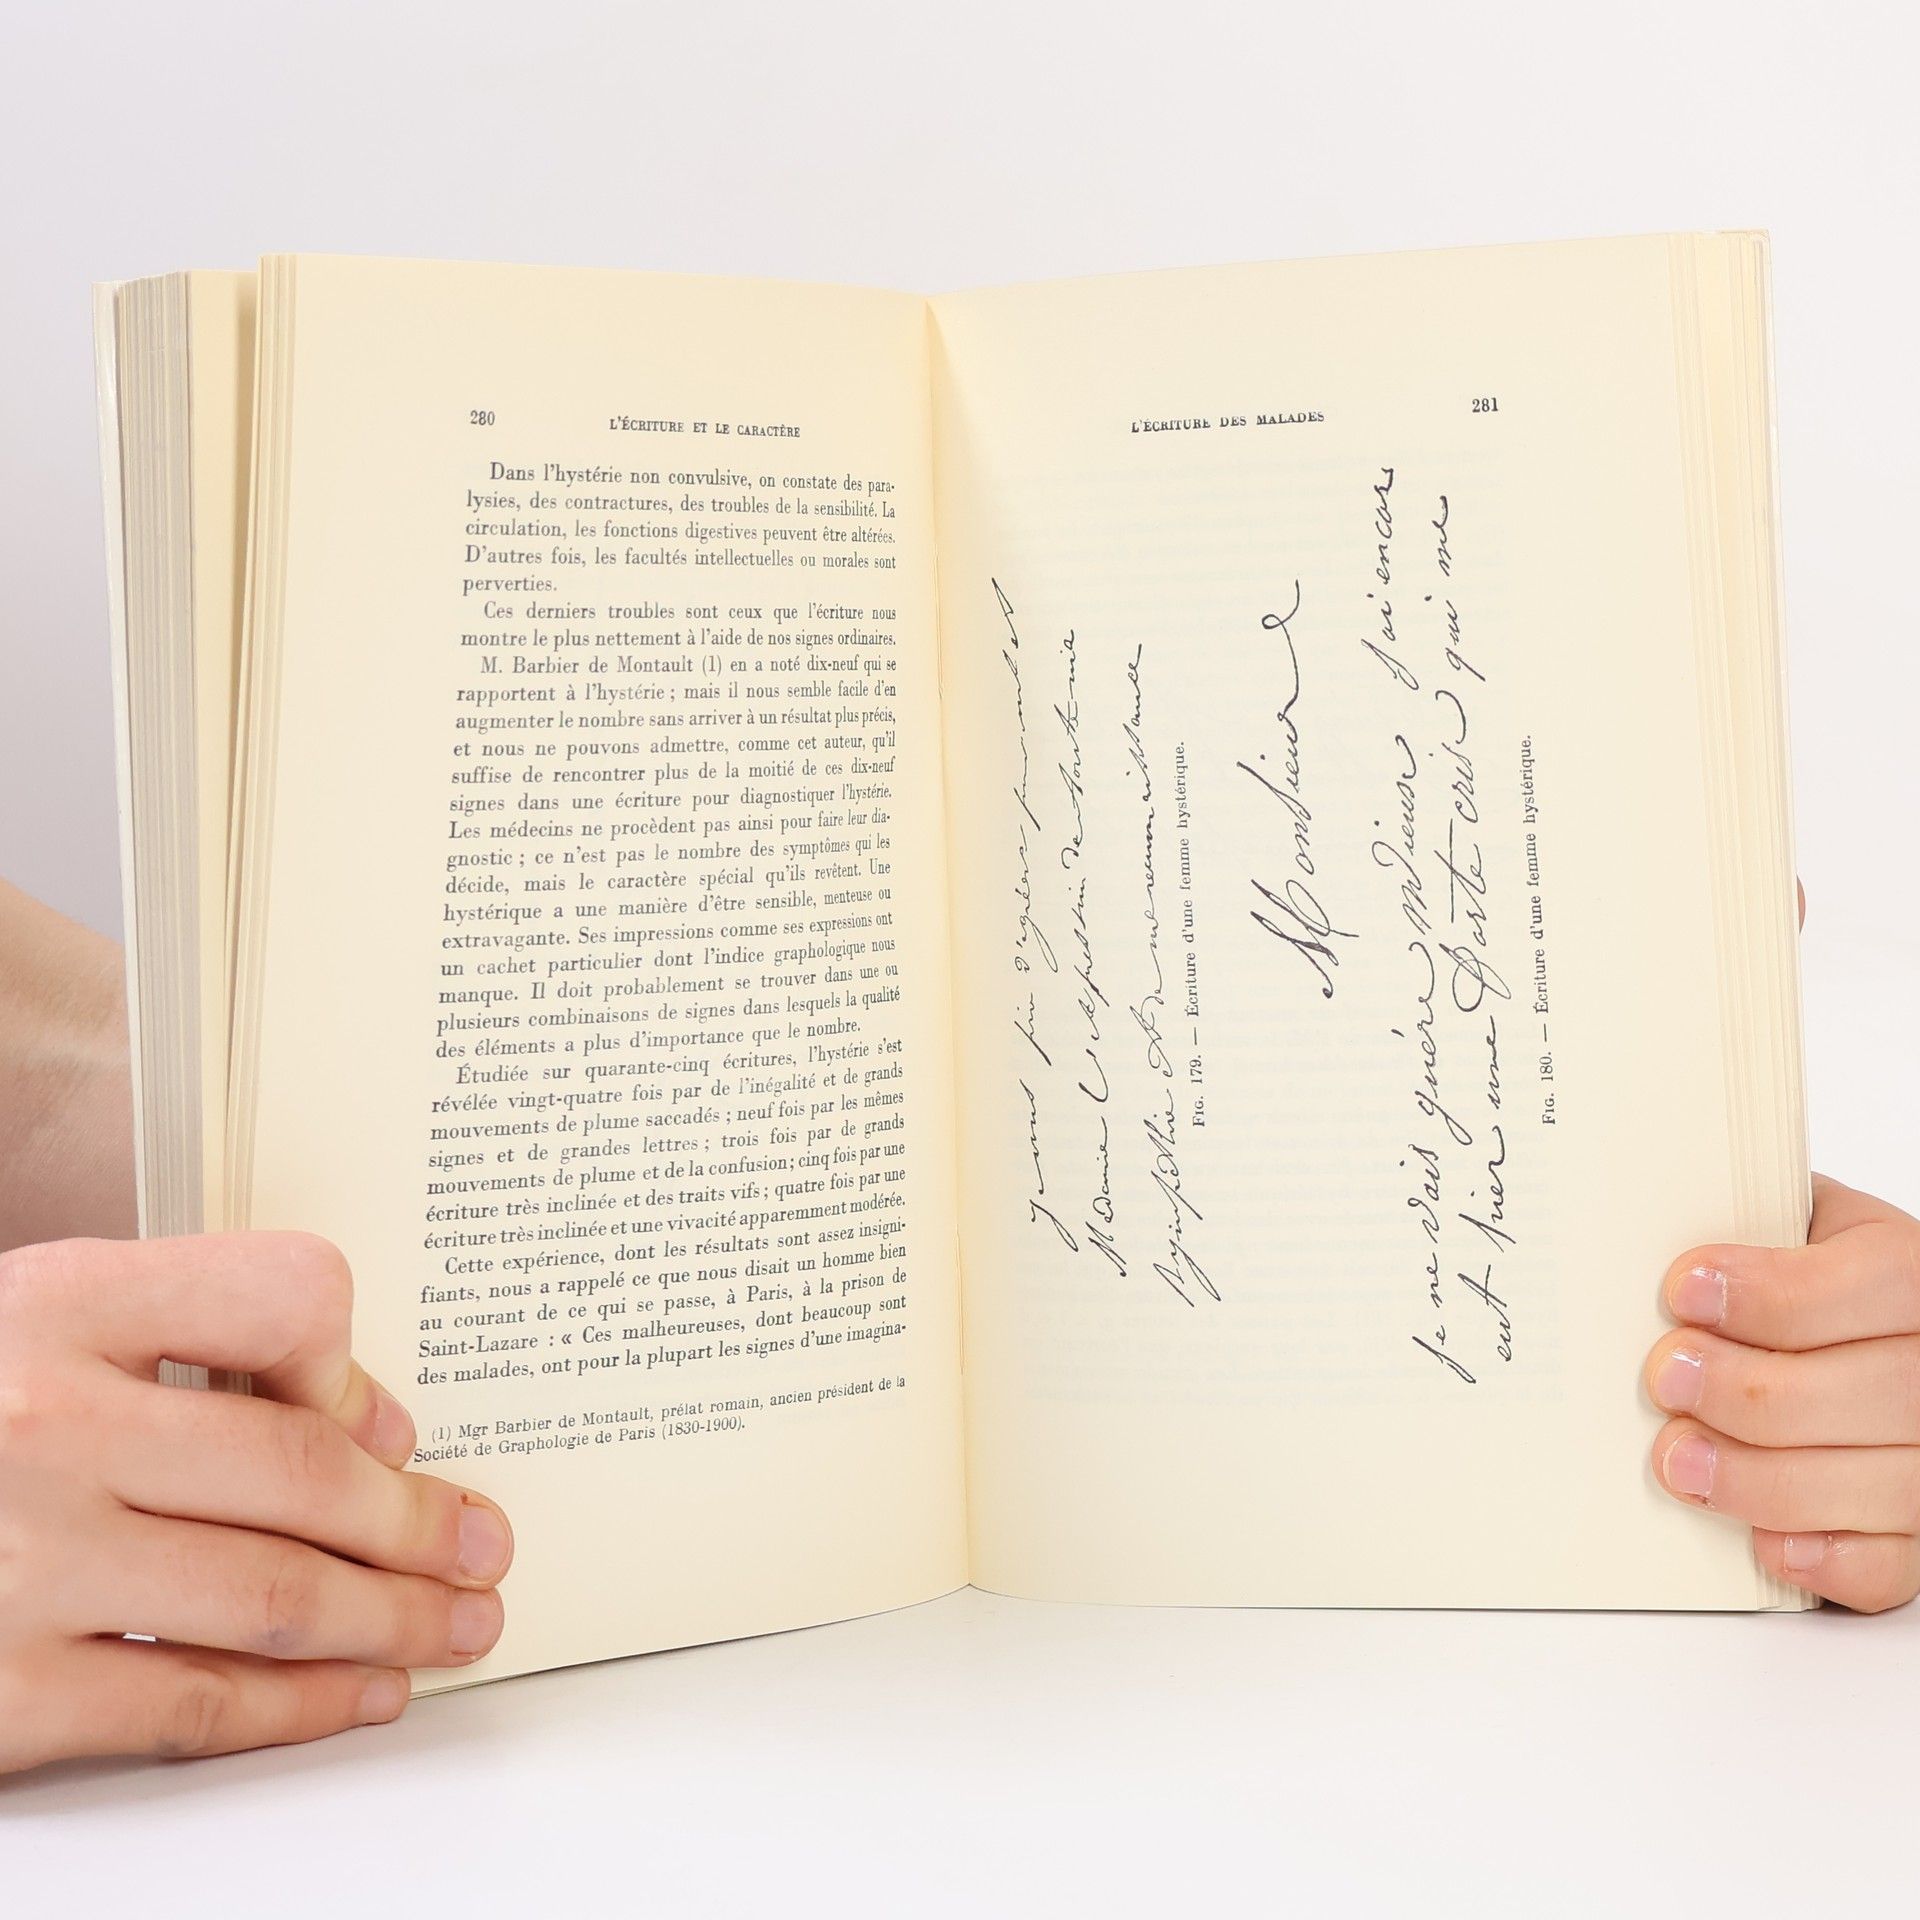 280
L'ÉCRITURE ET LE CARACTÈRE
Dans l'hystérie non convulsive, on constate des para-
lysies, des contractures, des troubles de la sensibilité. La
circulation, les fonctions digestives peuvent être altérées.
D'autres fois, les facultés intellectuelles ou morales sont
perverties.
Ces derniers troubles sont ceux que l'écriture nous
montre le plus nettement à l'aide de nos signes ordinaires.
M. Barbier de Montault (1) en a noté dix-neuf qui se
rapportent à l'hystérie ; mais il nous semble facile d'en
augmenter le nombre sans arriver à un résultat plus précis,
et nous ne pouvons admettre, comme cet auteur, qu'il
suffise de rencontrer plus de la moitié de ces dix-neuf
signes dans une écriture pour diagnostiquer l'hystérie.
Les médecins ne procèdent pas ainsi pour faire leur dia-
gnostic ; ce n'est pas le nombre des symptômes qui les
décide, mais le caractère spécial qu'ils revêtent. Une
hystérique a une manière d'être sensible, menteuse ou
extravagante. Ses impressions comme ses expressions ont
un cachet particulier dont l'indice graphologique nous
manque. Il doit probablement se trouver dans une ou
plusieurs combinaisons de signes dans lesquels la qualité
des éléments a plus d'importance que le nombre.
Étudiée sur quarante-cinq écritures, l'hystérie s'est
révélée vingt-quatre fois par de l'inégalité et de grands
mouvements de plume saccadés ; neuf fois par les mêmes
signes et de grandes lettres ; trois fois par de grands
mouvements de plume et de la confusion ; cinq fois par une
écriture très inclinée et des traits vifs ; quatre fois par une
écriture très inclinée et une vivacité apparemment modérée.
Cette expérience, dont les résultats sont assez insigni-
fiants, nous a rappelé ce que nous disait un homme bien
au courant de ce qui se passe, à Paris, à la prison de
Saint-Lazare : « Ces malheureuses, dont beaucoup sont
des malades, ont pour la plupart les signes d'une imagina-
(1) Mgr Barbier de Montault, prélat romain, ancien président de la
Société de Graphologie de Paris (1830-1900).
L'ÉCRITURE DES MALADES
281
Je vous prie d'agréer
Madame l'expression de toute ma
sympathie & de ma reconnaissance
FIG. 179. — Écriture d'une femme hystérique.
Monsieur
je ne vais guére mieux j'ai encore
eut hier une forte crise qui me
FIG. 180. — Écriture d'une femme hystérique.